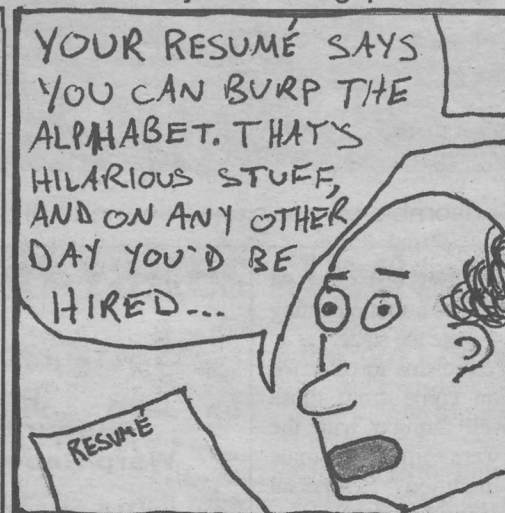 YOUR RESUMÉ SAYS
YOU CAN BURP THE
ALPHABET. THAT'S
HILARIOUS STUFF,
AND ON ANY OTHER
DAY YOU'D BE
HIRED...
RESUMÉ